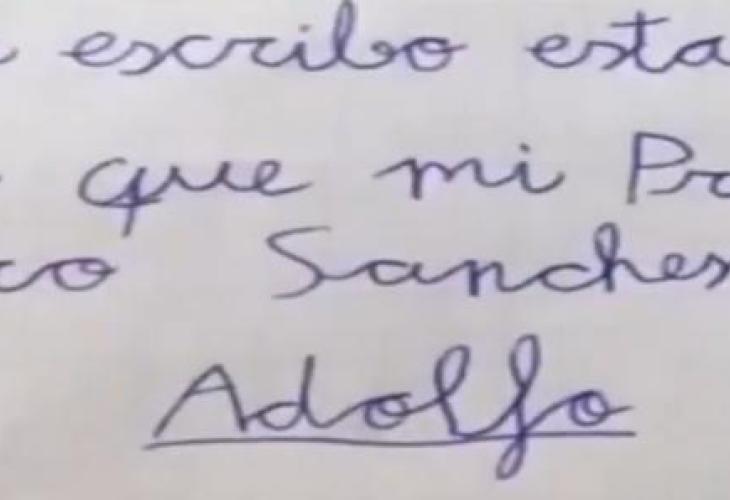 escribo esta
que mi Pr
co Sanches
Adolfo